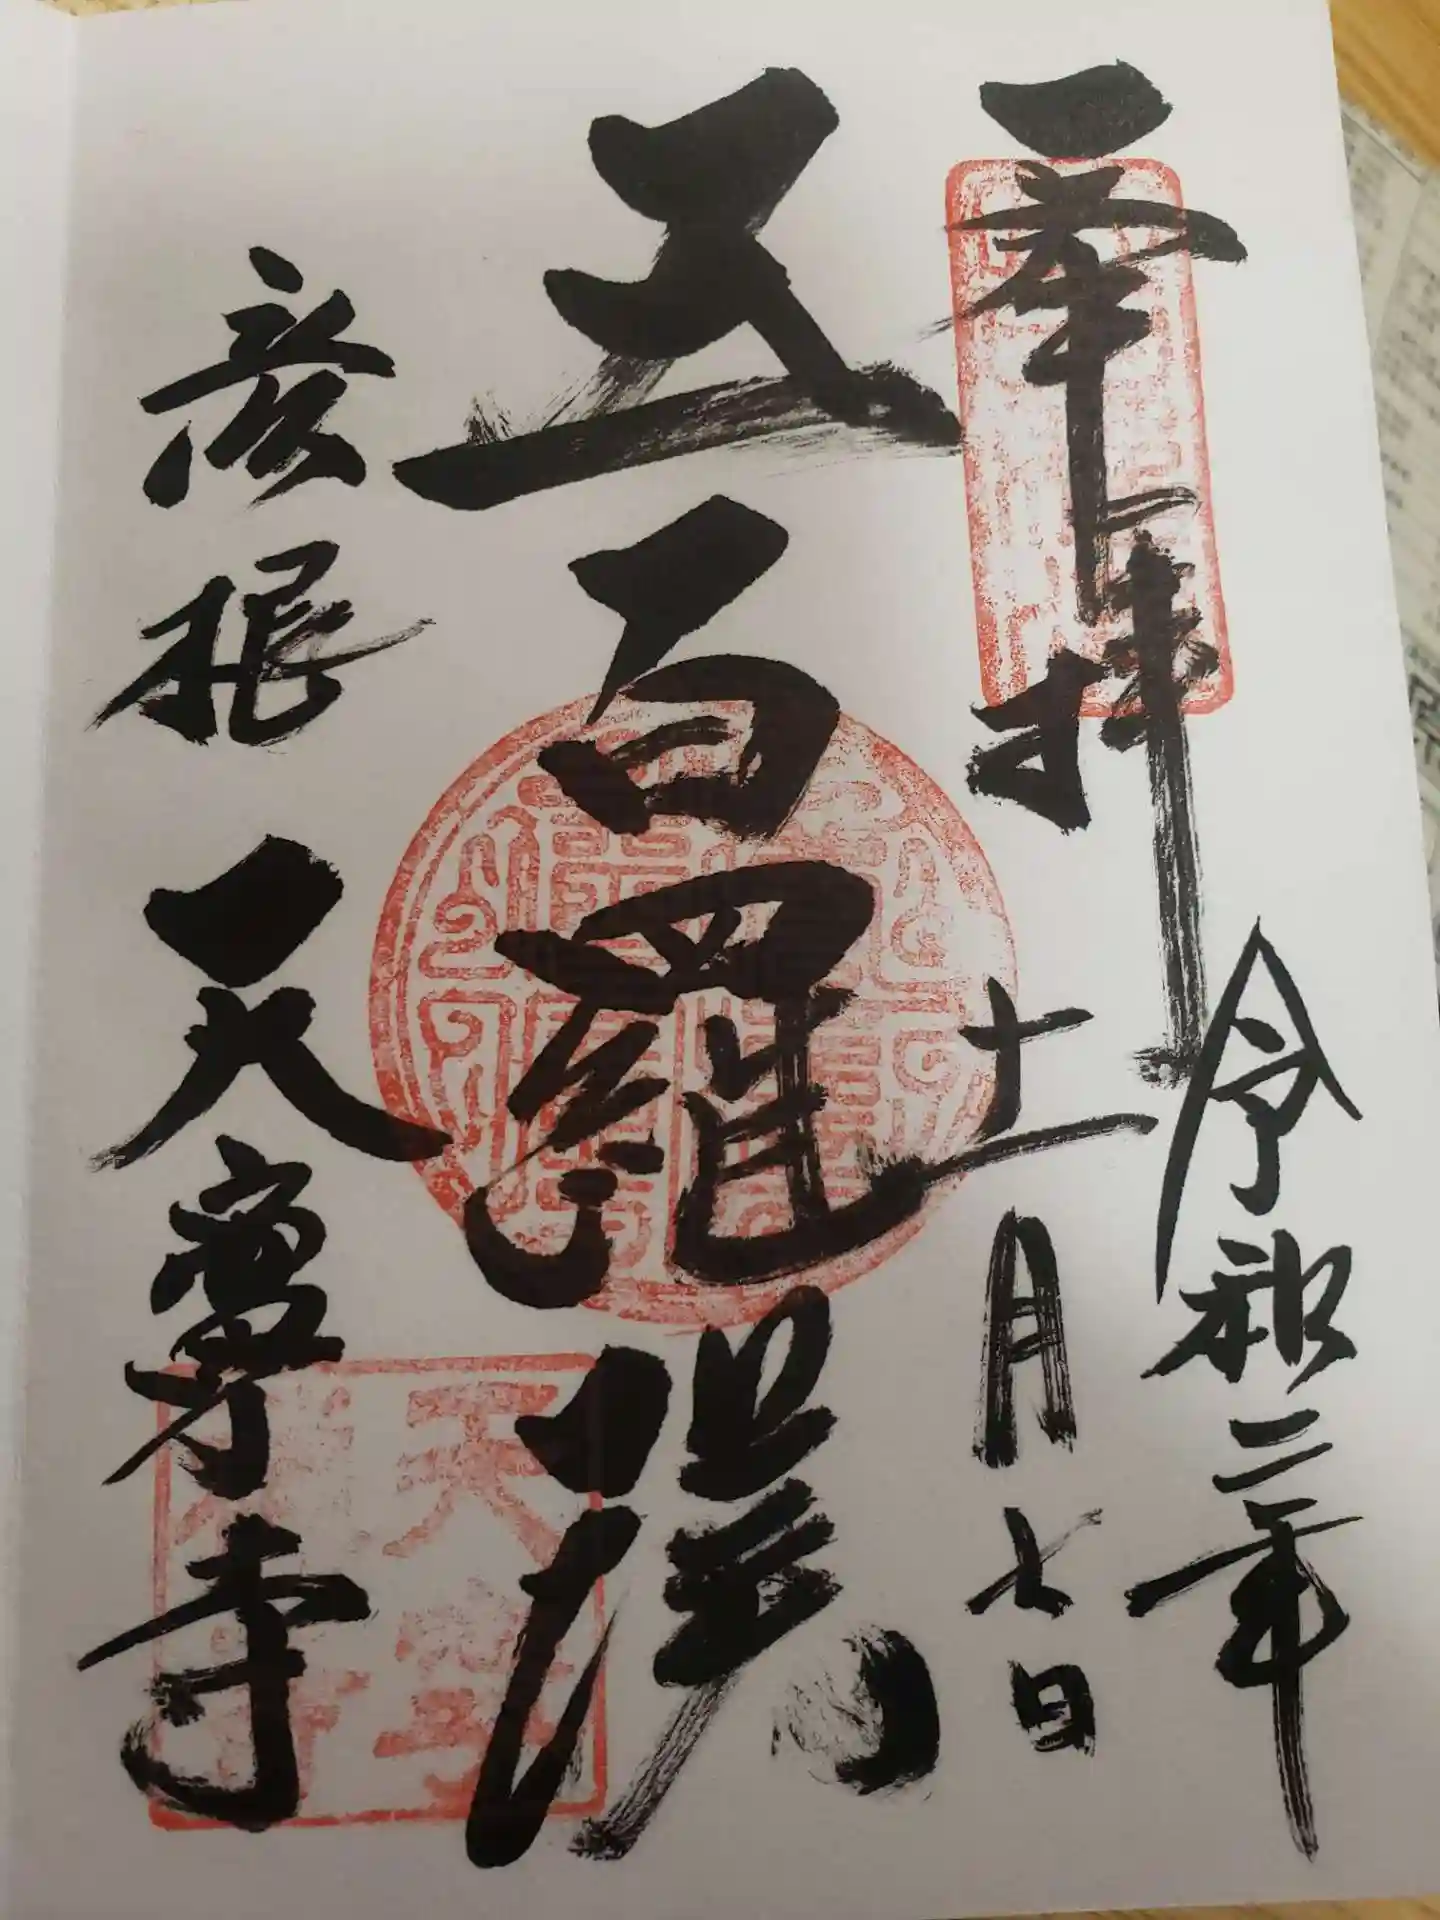 奉拝
令和二年
十一月七日
五百羅漢
彦根
天寧寺
天寧